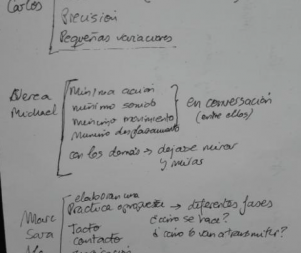 Carlos
Precisión
Pequeñas variaciones
Nerea
Michael
Mínima acción
mínimo sonido
mínimo movimiento
Mínimo desplazamiento
en conversación
(entre ellos)
con los demás → dejarse mirar
y miras
Marc
Sara
elaboran una
Práctica → diferentes fases
Tacto
contacto
¿cómo se hace?
¿cómo lo van a transmitir?